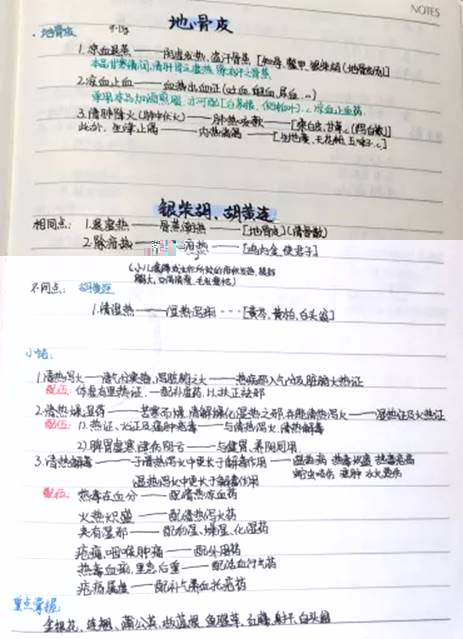 NOTES
地骨皮
地骨皮
1. 凉血退蒸——阴虚发热、盗汗骨蒸 [知母、鳖甲、银柴胡(地骨皮汤)]
本品甘寒清润,清肝肾之虚热,除有汗之骨蒸
2. 凉血止血——血热出血证(吐血、衄血、尿血…)
3. 清肺降火(肺中伏火)——肺热咳嗽——[桑白皮、甘草…(泻白散)]
此外,生津止渴——内热消渴——[生地黄、天花粉、五味子…]
银柴胡、胡黄连
相同点: 1. 退虚热——骨蒸潮热——[地骨皮](清骨散)
2. 除疳热——疳热——[鸡内金、使君子]
不同点: 胡黄连
1. 清湿热——湿热泻痢---[黄芩、黄柏、白头翁]
小结:
1. 清热泻火——清气分实热、泻脏腑之火——热病邪入气分及脏腑火热证
配伍: 体虚有里热证——配补虚药,以扶正祛邪
2. 清热燥湿药——苦寒不燥,清解燥化湿热之邪,并能清热泻火——湿热证及火热证
配伍: 1). 热证、火证及痈肿病证——与清热泻火、清热解毒
2) 脾胃虚寒,津伤阴亏——与健胃、养阴同用
3. 清热解毒——于清热泻火中更长于解毒作用——温毒病 热毒炽盛
湿热泻火中更长于解毒作用
配伍: 热毒在血分——配清热凉血药
火热炽盛——配清热泻火药
夹有湿邪——配利湿、燥湿、化湿药
疮痈、咽喉肿痛——配外用药
热毒血痢、里急后重——配活血行气药
疮痈属虚——配补气养血托疮药
重点掌握
金银花、连翘、蒲公英、板蓝根、鱼腥草、白头翁